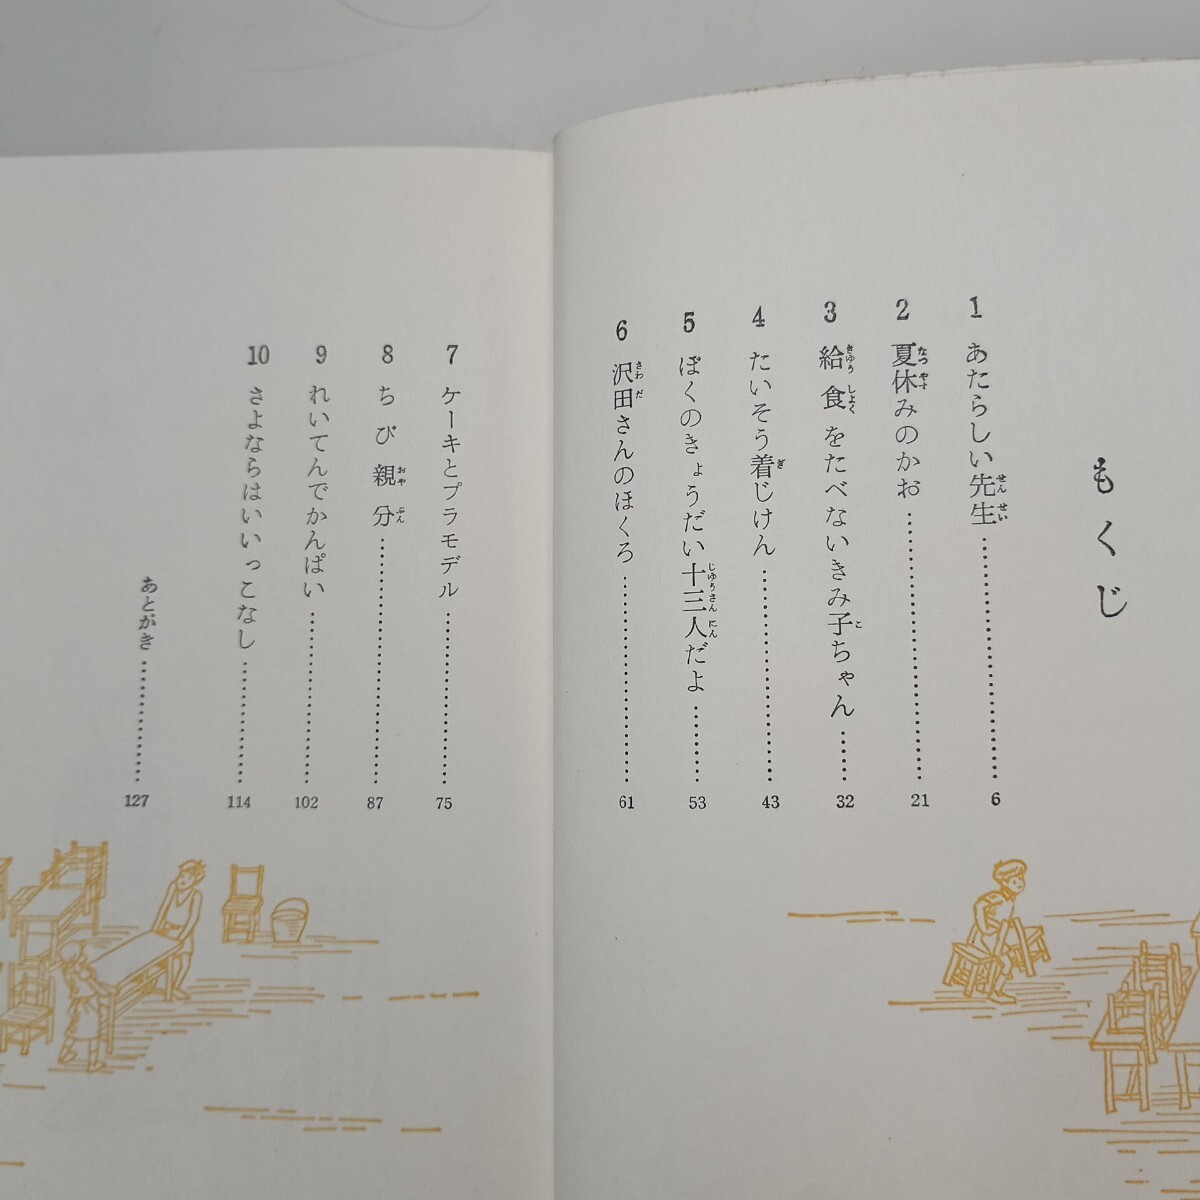 もくじ
1 あたらしい先生……………………6
せんせい
2 夏休みのかお……………………21
なつやす
3 給食をたべないきみ子ちゃん……32
きゆうしよくこ
4 たいそう着じけん……………………43
ぎ
5 ぼくのきょうだい十三人だよ………53
じゆうさんにん
6 沢田さんのほくろ……………………61
さわだ
7 ケーキとプラモデル……………………75
8 ちび親分……………………87
おやぶん
9 れいてんでかんぱい……………………102
10 さよならはいいっこなし……………114
あとがき……………127